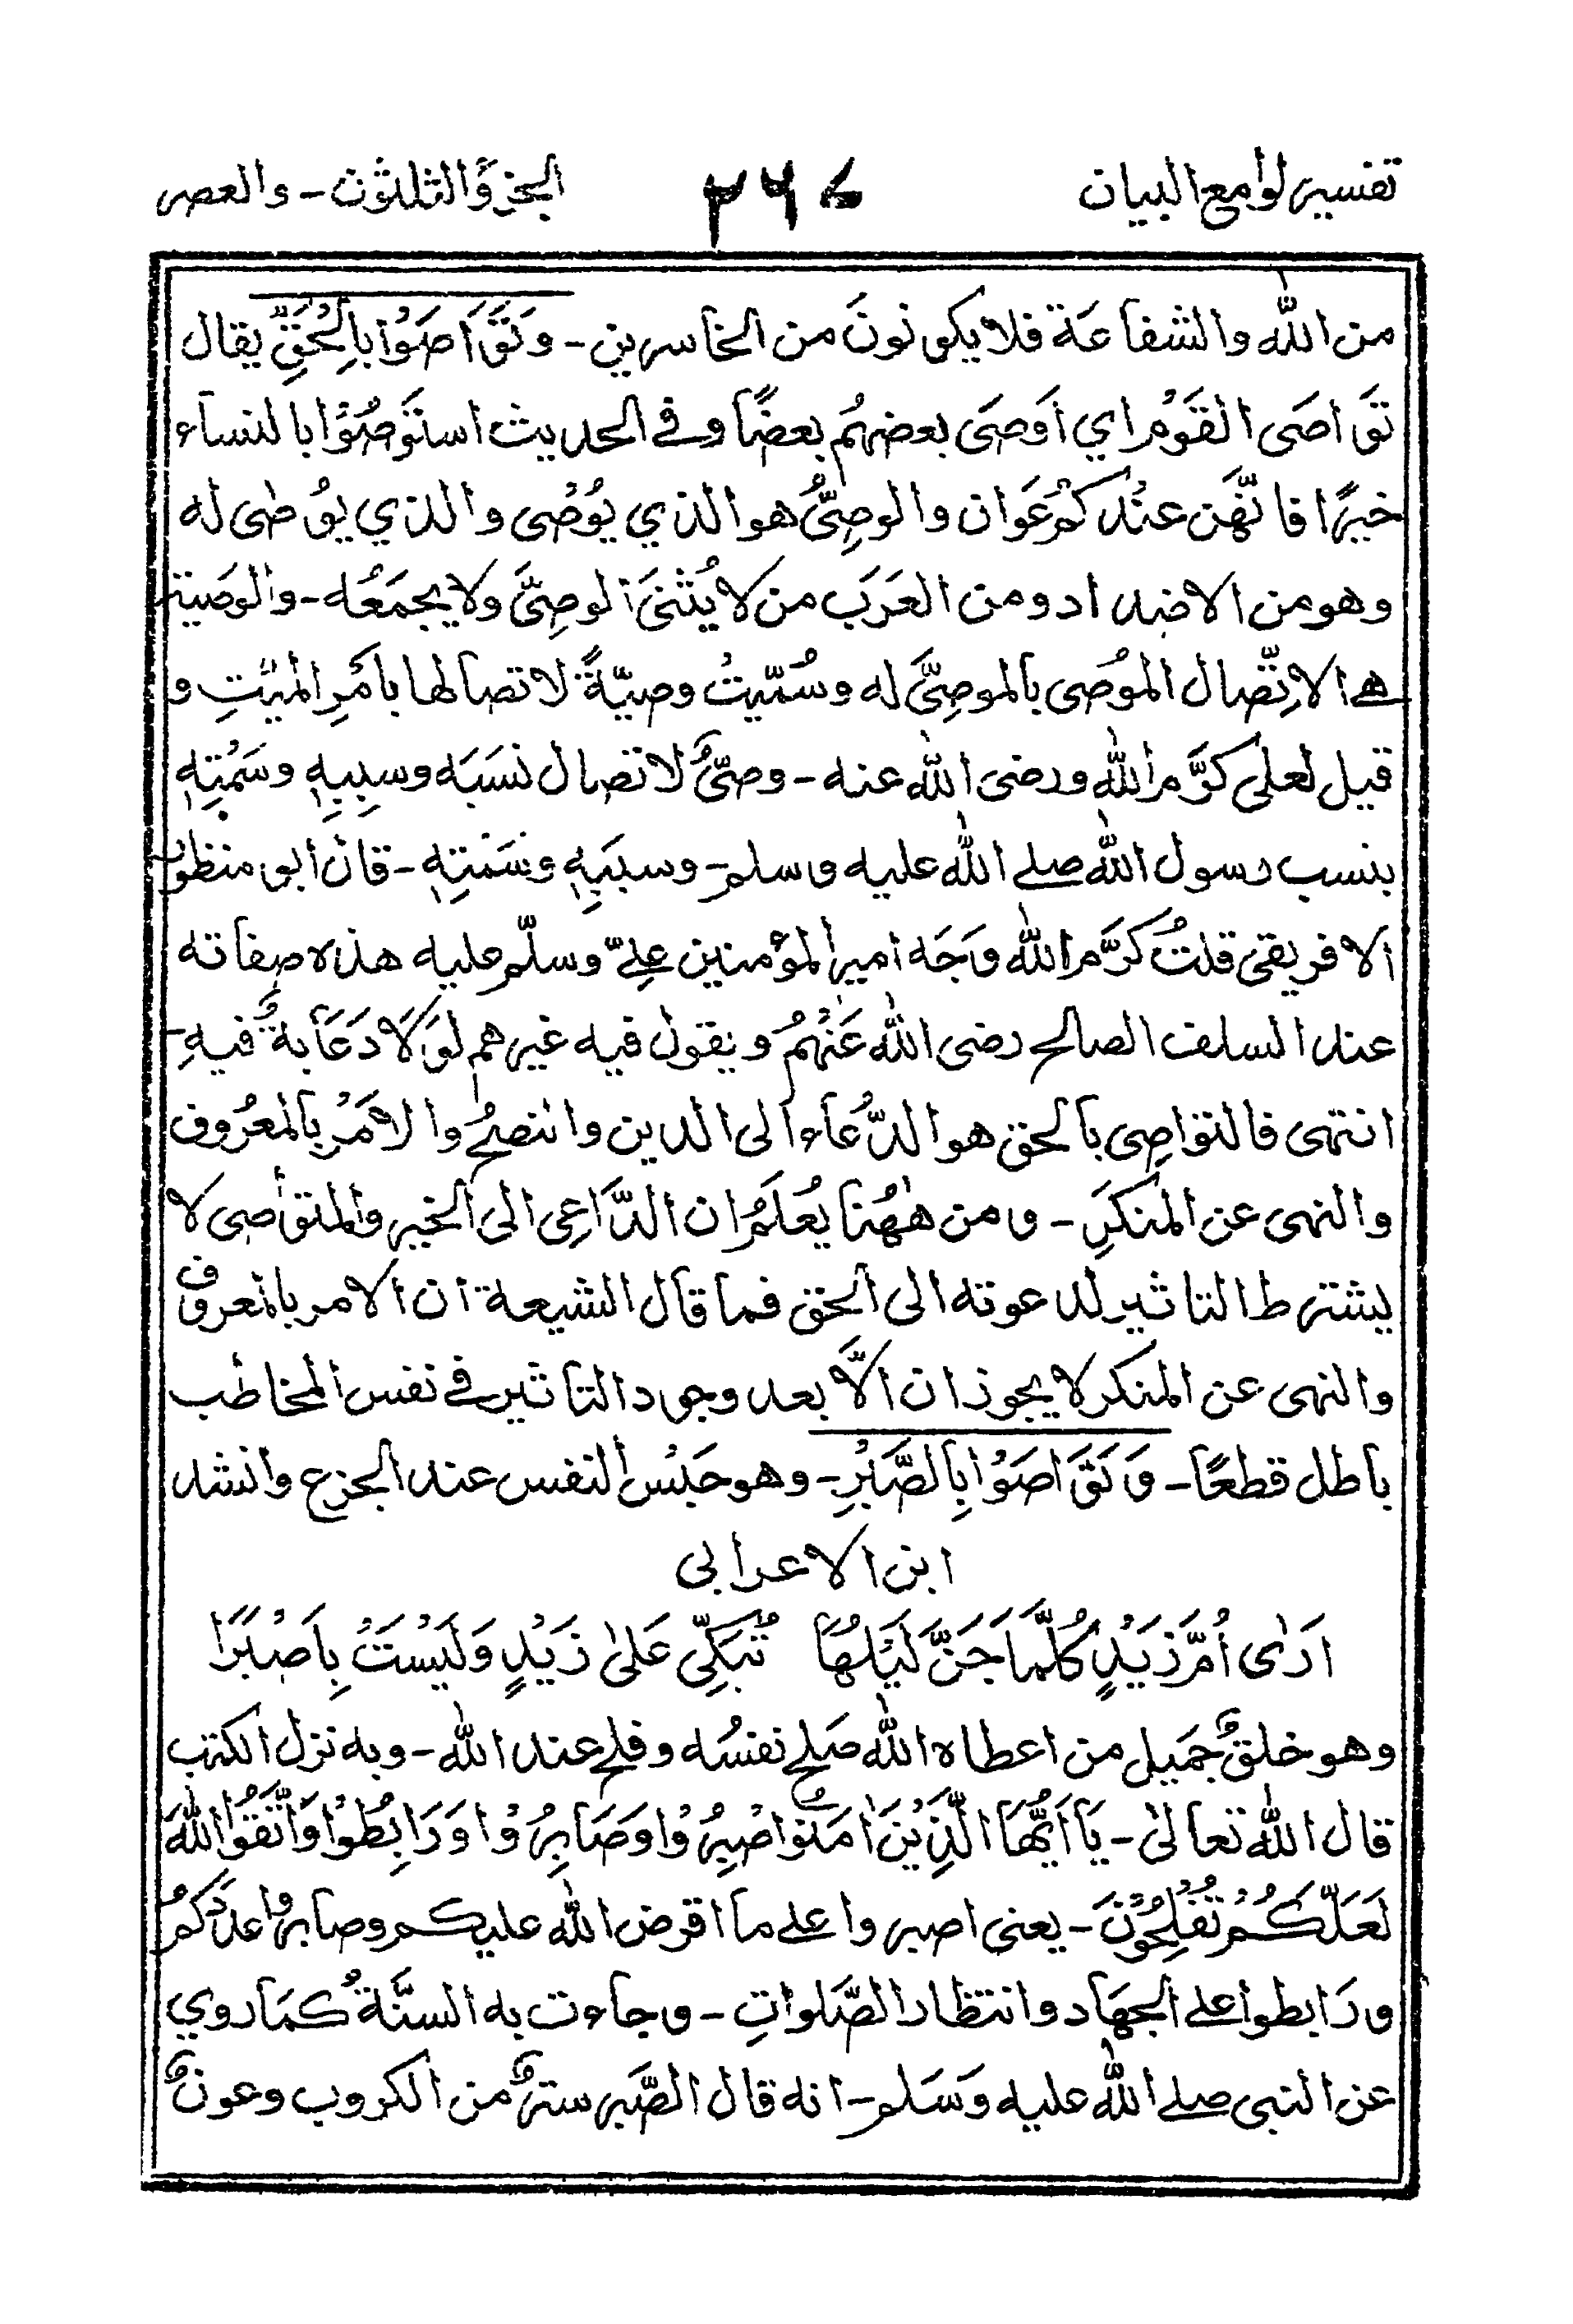 تفسير لوامع البيان ٢٦٧ الجزؤ الثلثون - والعصر
من الله والشفاعة فلا يكونونَ من الخاسرين - وَتَوَاصَوْا بِالْحَقِّ يقال
تَوَاصَى القَوْم اي أوصَى بعضهُم بعضًا وفي الحديث استَوصُوْا بالنساء
خيرًا فانّهَن عنْدكُم عَوان والوصِىُّ هو الذي يُوْصى والذي يوُصى له
وهو من الاضداد ومن العَرَب من لا يُثْنىَ الوصِىَّ ولا يجمَعُه - والوصَية
هے الاتِّصال الموُصى بالموصِىَّ له وسُمّيتْ وصيّةً لاتصالها بأمْرِ الميّتِ و
قيل لعلى كرَّم الله ورضى الله عنه - وصىٌّ لاتصال نسَبَه وسببِهٖ وسَمْتِهٖ
بنسب رسول الله صلے الله عليه وسلم - وسبَبِهٖ وسَمْتِهٖ - قال أبو منظور
الافريقى قلتُ كرَّم الله وَجَه امير المؤمنين علِىّ وسلّم عليه هذه صفاته
عند السلف الصالح رضى الله عَنْهُم ويقول فيه غيرهم لوَلَا دَعَابة ٌفيهِ -
انتهى فالتواصِى بالحق هو الدُّعاء الى الدين والنصحُ والامْر بالمعرُوف
والنهى عن المنكَرِ - ومن ههُنا يُعْلَمُ ان الدَّاعِى الى الخير والمتوَاصِى لا
يشترط التاثير لدعوته الى الحق فما قال الشيعة ان الامر بالمعروف
والنهى عن المنكر لا يجوزان الاَّ بعد وجود التاثير في نفس المخاطب
باطل قطعًا - وَتَوَاصَوْا بِالصَّبْرِ - وهو حَبْس النفس عند الجزع وانشد
ابن الاعرابى
ارَىٰ اُمَّ زَيْدٍ كُلَّمَا جَنَّ لَيْلُهَا تُبَكِّى عَلىٰ زَيْدٍ وَلَيْسَتْ بِاَصْبَرَا
وهو خلقٌ جَميل من اعطاه الله صَلح نفسُه وفلح عند الله - وبه نزل الكتب
قال الله تعالىٰ - يَا اَيُّهَا الَّذِيْنَ اٰمَنُوا اصْبِرُوْا وَصَابِرُوْا وَرَابِطُوْا وَاتَّقُوْا اللهَ
لَعَلَّكُمْ تُفْلِحُوْنَ - يعنى اصبروا علے ما افرض الله عليكم وصابروا عدّوكمُ
ورَابطوا علے الجهاد وانتظار الصَّلواتِ - وجاءت به السنَّةُ كمَا روي
عن النبى صلے الله عليه وَسَلم - انه قال الصَّبر سترٌ من الكروب وعونٌ